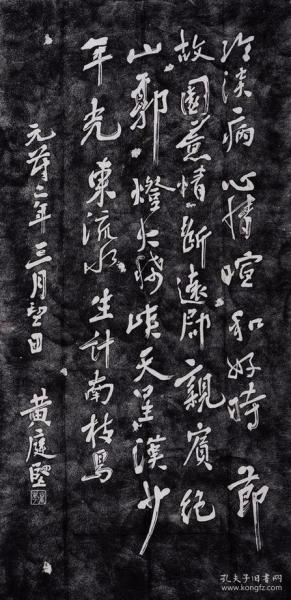 冷淡病心情暄和好時節
故園意情斷遠郡親賓絕
山郭燈火稀峽天星漢少
年光東流水生計南枝鳥
元符二年三月望日 黃庭堅
孔夫子旧书网
www.kongfz.com